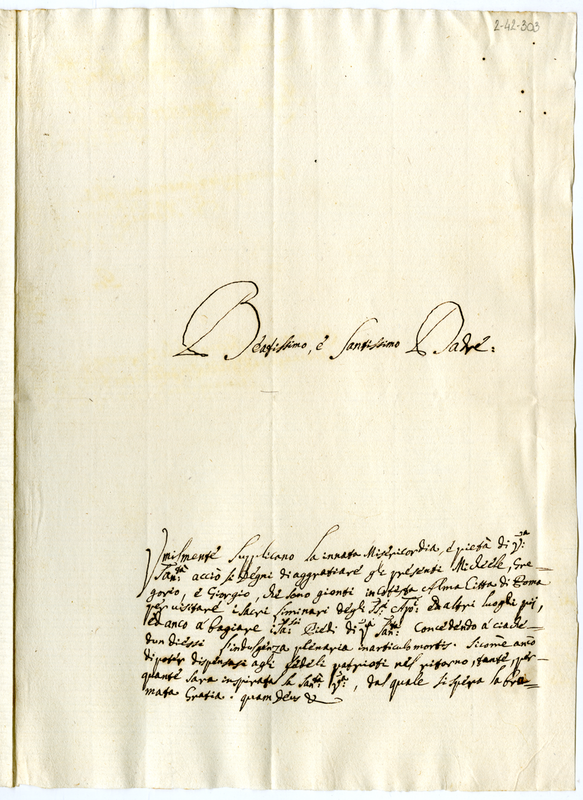 2-42-303
Beatissimo, è Santissimo Padre:
Vmilmente Supplicano la innata Misericordia, è pietà di V:ra
San:tà acciò si degni di aggratiare gli presenti Michele, Gre=
gorio, è Giorgio, che sono gionti in cotesta Alma Città di Roma
per visitare i sacri liminari degli S:ti Apo:li ed altri luoghi pii,
ed anco à bagiare i Piedi di V:ra San:tà Concedendo à ciasche=
dun di essi l'indulgenza plenaria in articulo mortis. Sicome anco
di poter dispensarsi agli fedeli patrioti nel ritorno, tante, per=
quante sarà inspirata la San:tà V:ra, dal quale si spera la bra=
mata Gratia. quam Deus &